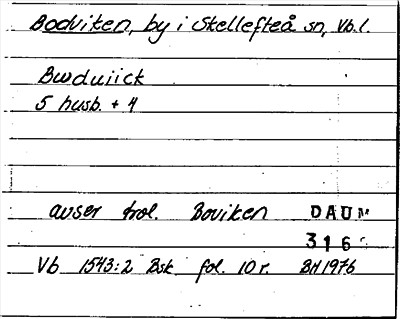 Bodviken, by i Skellefteå sn, Vb.l.
Bwduiick
5 husb. + 4
avser trol. Boviken DAUM
316
Vb 1543:2 Bsk fol. 10 r. BH 1976